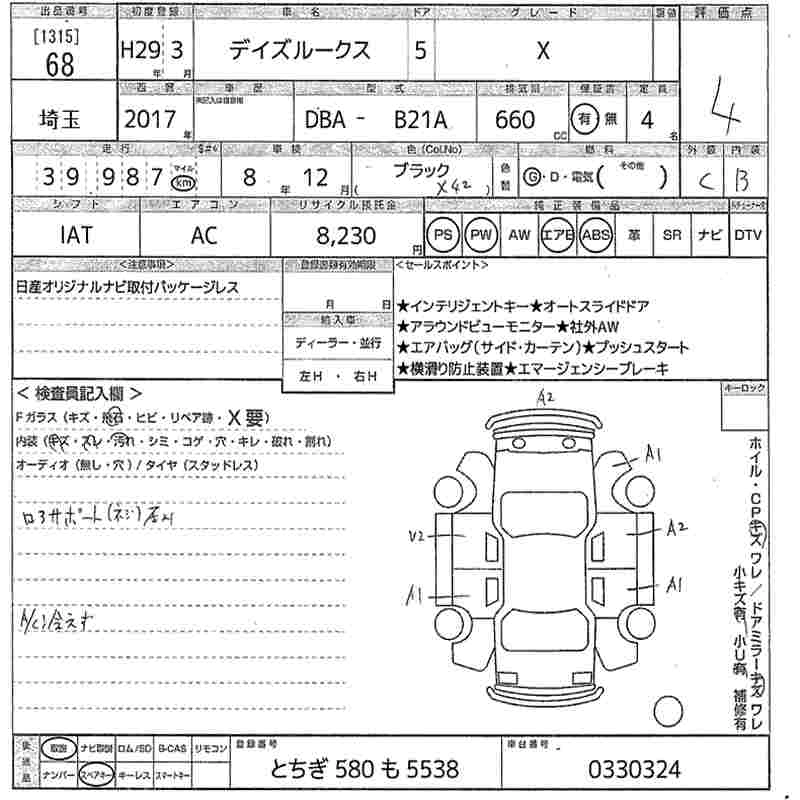 出品番号 初度登録 車名 ドア グレード 評価点
[1315]
68 H29 3 デイズルークス 5 X 4
年 月
車歴 型式 排気量 保証書 定員
埼玉 2017 年 DBA - B21A 660 CC 有 無 4 名
走行 車検 色(Col.No) 燃料 外装 内装
39987 マイル km 8 年 12 月 ブラック ( X42 ) 色替 G・D・電気( その他 ) C B
シフト エアコン リサイクル預託金 純正装備品
IAT AC 8,230 円 PS PW AW エアB ABS 革 SR ナビ DTV
<注意事項> 登録書類有効期限 <セールスポイント>
日産オリジナルナビ取付パッケージレス
月 日
輸入車
ディーラー・並行
左H ・ 右H
★インテリジェントキー★オートスライドドア
★アラウンドビューモニター★社外AW
★エアバッグ(サイド・カーテン)★プッシュスタート
★横滑り防止装置★エマージェンシーブレーキ
キーロック
< 検査員記入欄 >
Fガラス (キズ・飛石・ヒビ・リペア跡・X要)
内装 (キズ・スレ・汚れ・シミ・コゲ・穴・キレ・破れ・割れ)
オーディオ (無し・穴) / タイヤ (スタッドレス)
ロアサポート(ネジ)
A/C冷えず
A2
A1
V2 A2
A1 A1
ホイル・CPキズ ワレ / ドアミラーキズ ワレ
小キズ有、小U有、補修有
後送品 取説 ナビ取説 ロム/SD B-CAS リモコン
ナンバー スペアキー キーレス スマートキー
登録番号
とちぎ 580 も 5538
車台番号
0330324